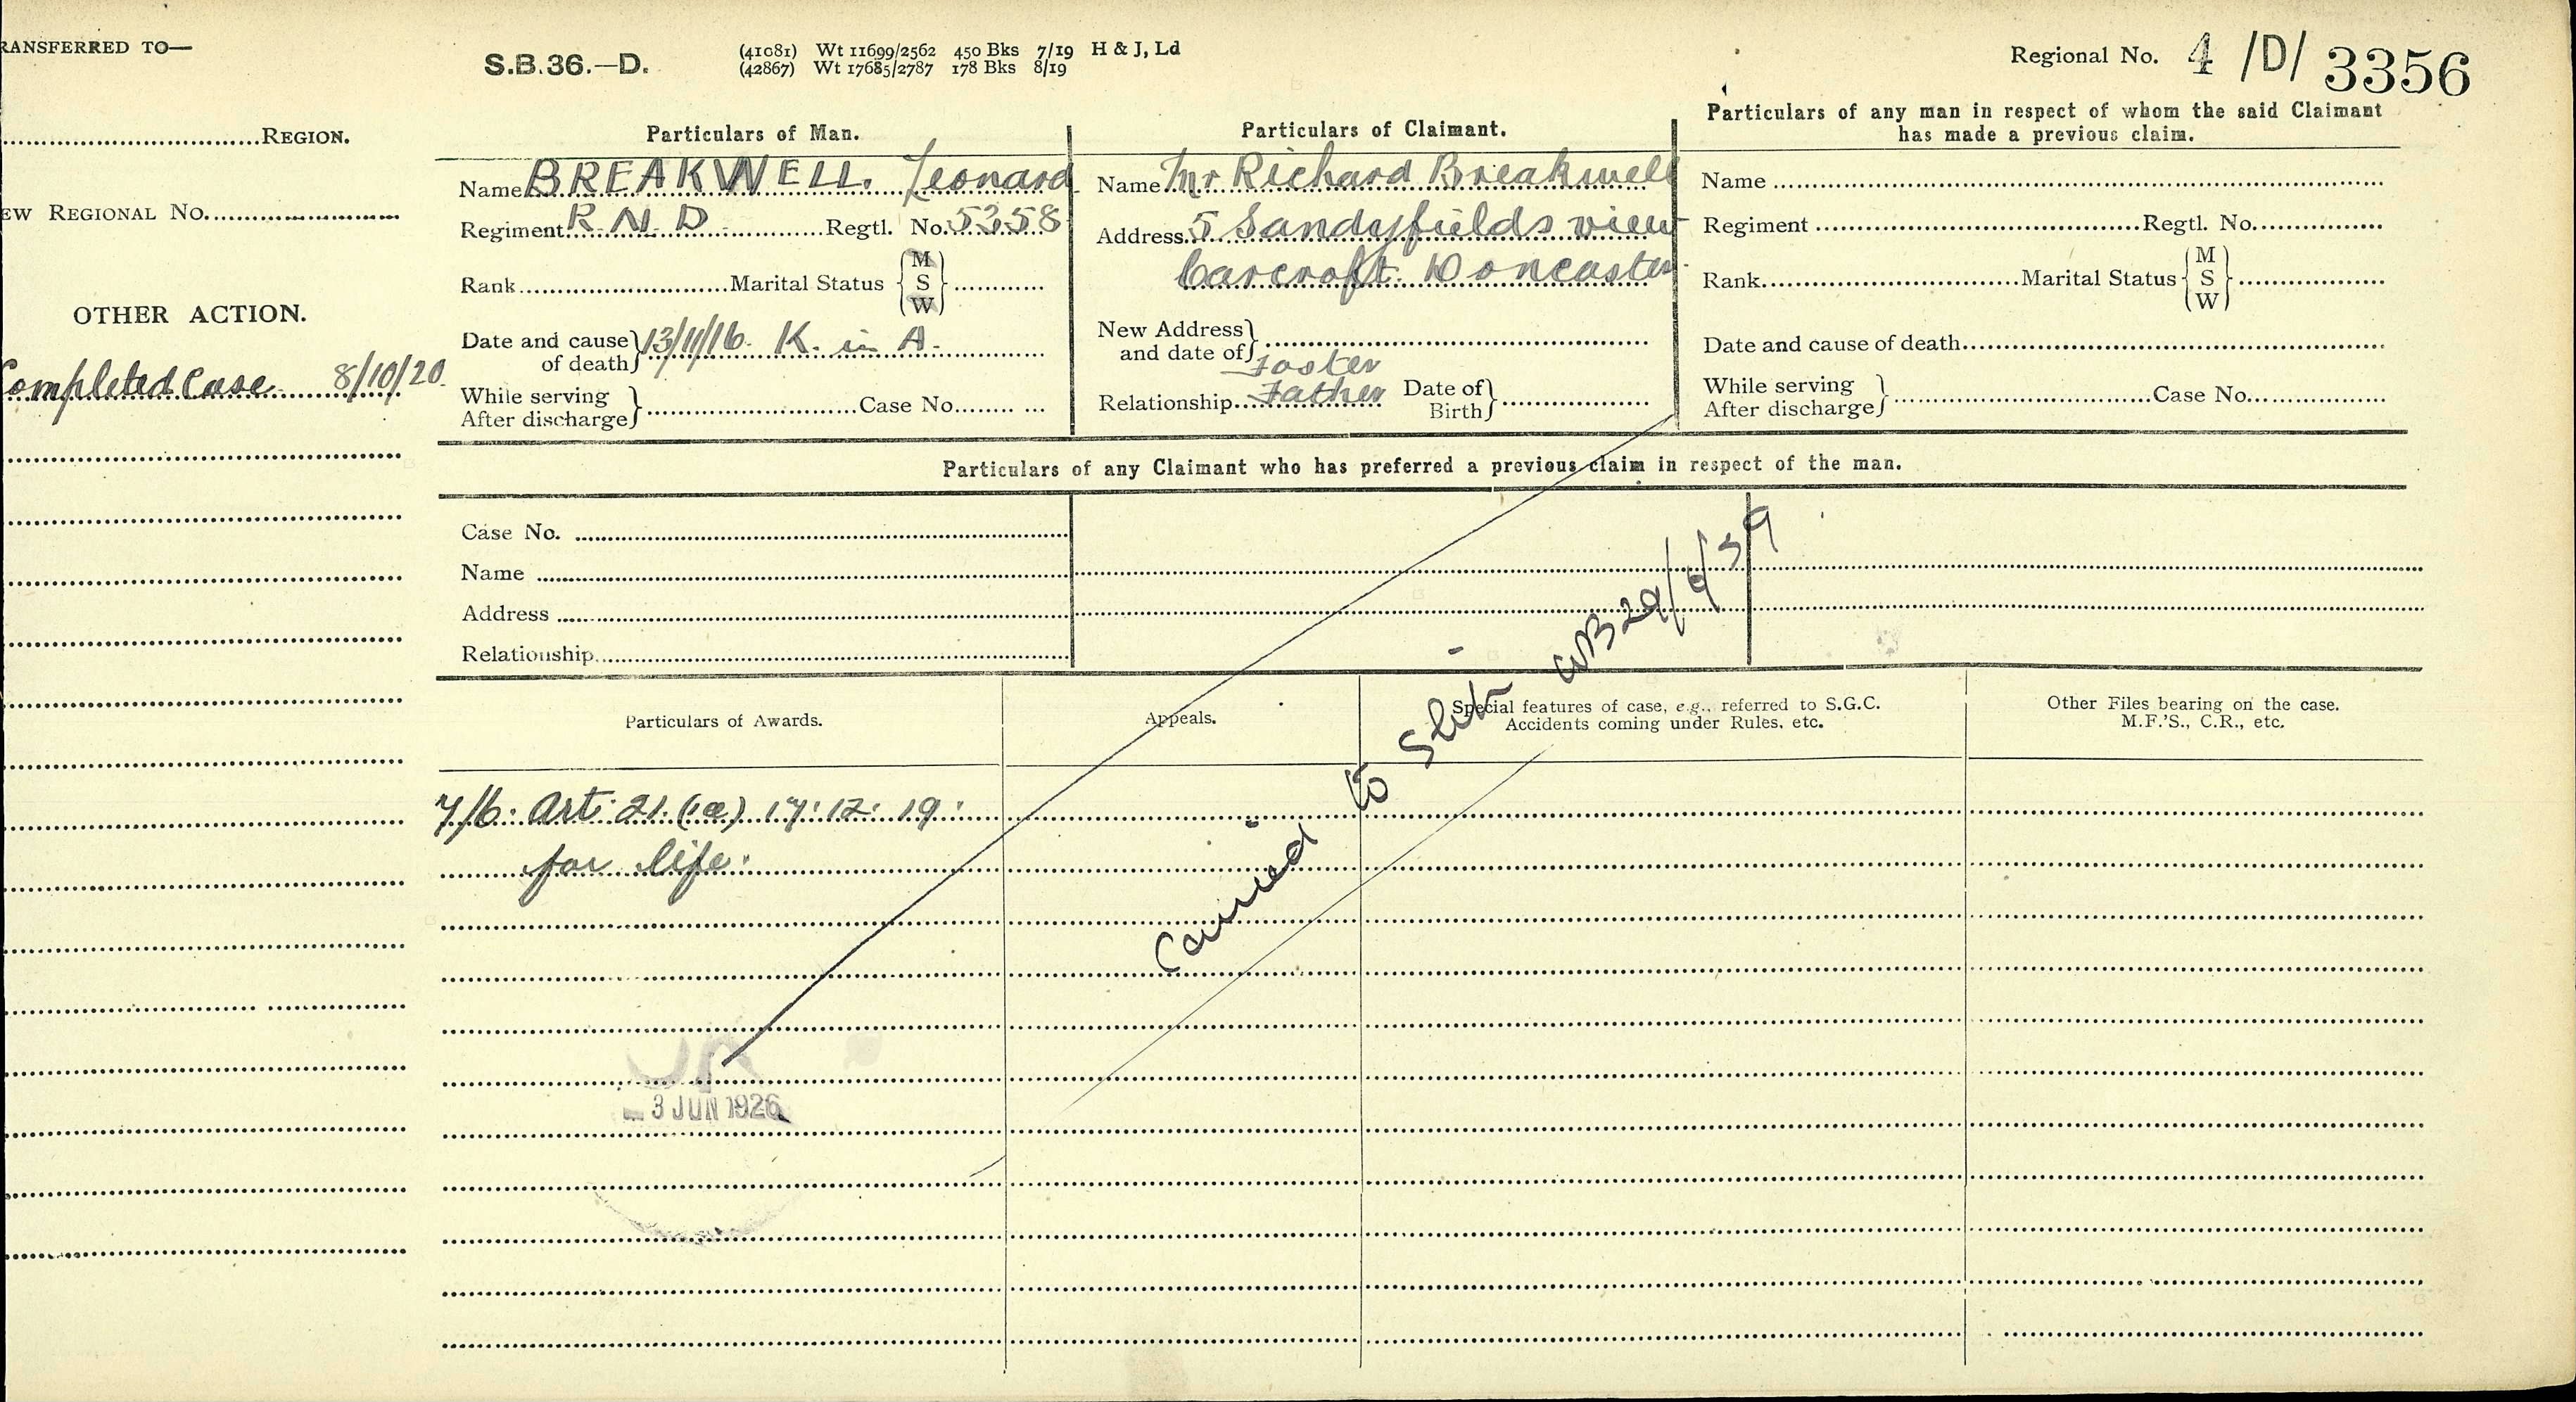 RANSFERRED TO—
S.B.36.—D.
(41081) Wt 11699/2562 450 Bks 7/19 H & J, Ld
(42867) Wt 17685/2787 178 Bks 8/19
Regional No. 4 /D/ 3356
REGION.
EW REGIONAL NO.
OTHER ACTION.
Completed Case 8/10/20.
Particulars of Man.
Name BREAKWELL. Leonard
Regiment R.N.D. Regtl. No. 5358
Rank Marital Status { M S W }
Date and cause of death } 13/11/16. K. in A.
While serving
After discharge } Case No.
Particulars of Claimant.
Name Mr Richard Breakwell
Address 5 Sandyfields view
Carcroft. Doncaster.
New Address and date of }
Foster
Relationship Father Date of Birth }
Particulars of any man in respect of whom the said Claimant
has made a previous claim.
Name
Regiment Regtl. No.
Rank Marital Status { M S W }
Date and cause of death
While serving
After discharge } Case No.
Particulars of any Claimant who has preferred a previous claim in respect of the man.
Case No.
Name
Address
Relationship
Particulars of Awards.
Appeals.
Special features of case, e.g., referred to S.G.C.
Accidents coming under Rules, etc.
Other Files bearing on the case.
M.F.'S., C.R., etc.
7/6. Art. 21. (1a) 17. 12. 19.
for life.
Carried to Slip WB 29/6/39
3 JUN 1926